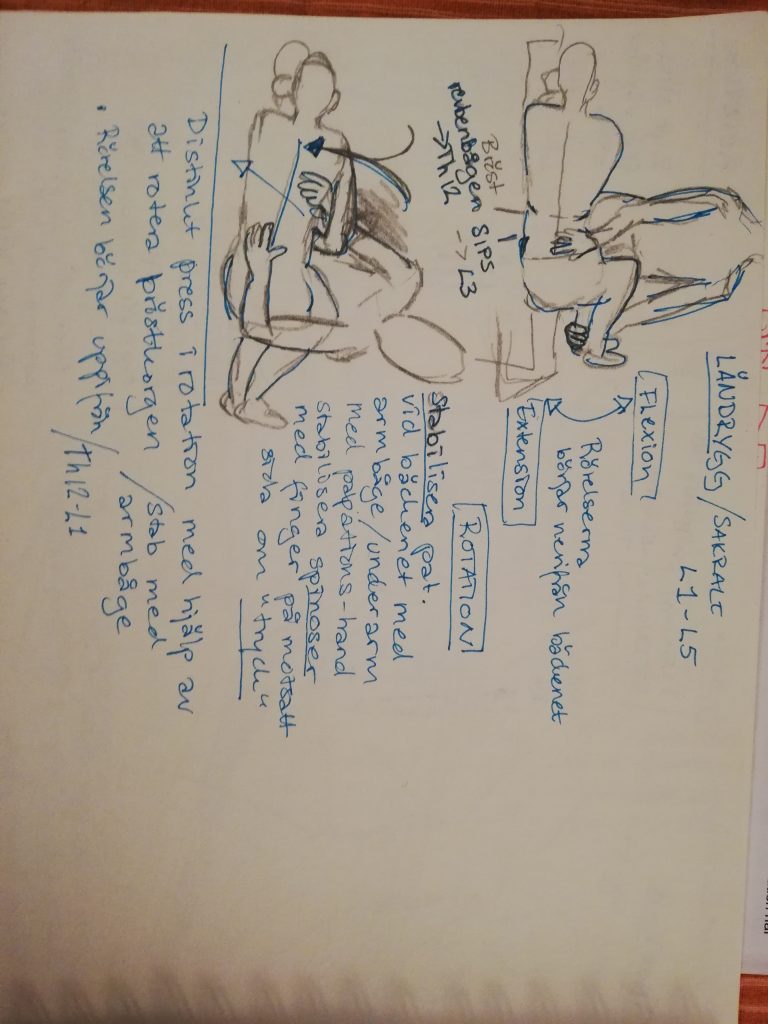 LÄNDRYGG/SAKRALT
L1-L5
Flexion
Rörelserna
börjar nerifrån bäckenet
Extension
Bröst
revbenbågen SIPS
->Th12 -> L3
ROTATION
stabilisera pat.
vid bäckenet med
armbåge/underarm
med palpations-hand
stabilisera spinoser
med finger på motsatt
sida om utryck"
Distinkt press i rotation med hjälp av
att rotera bröstkorgen /stab med
armbåge
• Rörelsen börjar uppifrån /Th12-L1